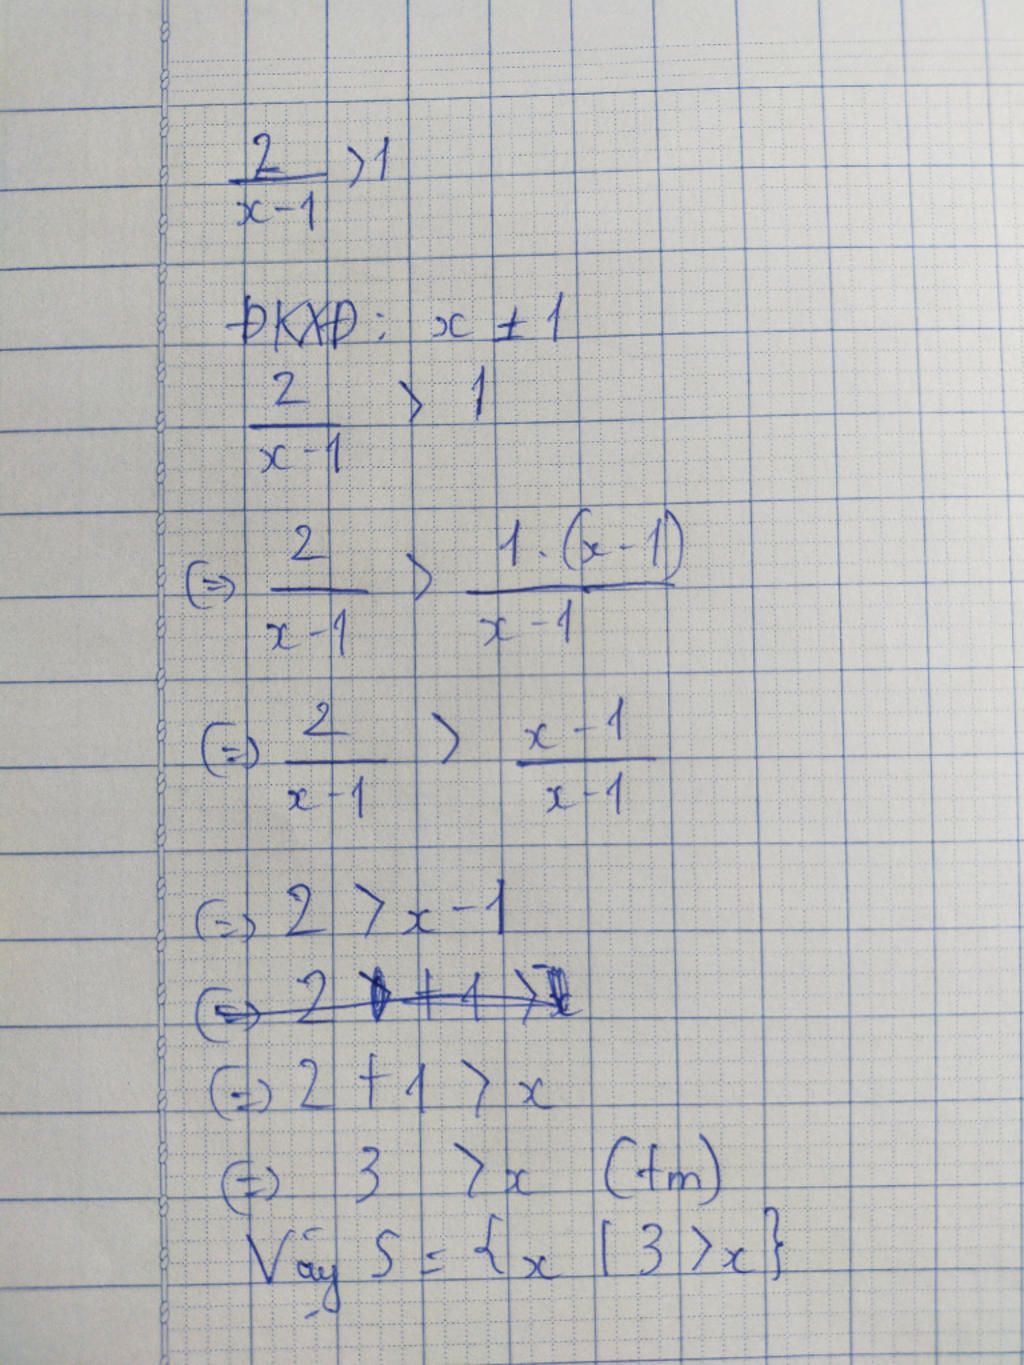 2/(x-1) > 1
ĐKXĐ: x ≠ 1
2/(x-1) > 1
(=) 2/(x-1) > 1.(x-1)/(x-1)
(=) 2/(x-1) > (x-1)/(x-1)
(=) 2 > x-1
(=) 2 + 1 > x
(=) 3 > x (tm)
Vậy S = {x | 3 > x}